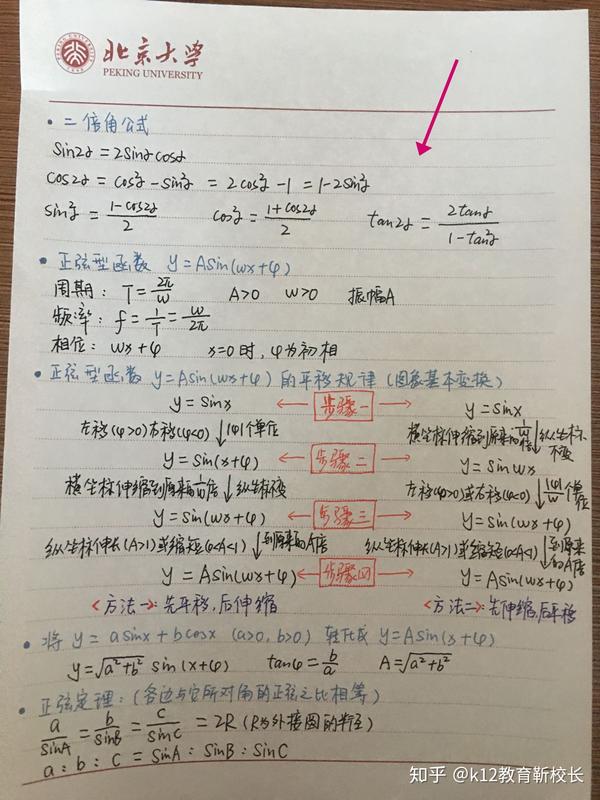 北京大学
PEKING UNIVERSITY
• 二倍角公式
Sin2α = 2Sinα cosα
cos2α = cos²α - sin²α = 2cos²α - 1 = 1 - 2sin²α
sin²α = (1-cos2α)/2 cos²α = (1+cos2α)/2 tan2α = 2tanα/(1-tan²α)
• 正弦型函数 y=Asin(wx+φ)
周期: T = 2π/w A>0 w>0 振幅A
频率: f = 1/T = w/2π
相位: wx+φ x=0时, φ为初相
• 正弦型函数 y=Asin(wx+φ) 的平移规律 (图象基本变换)
y=Sinx ← 步骤一 → y=Sinx
左移(φ>0)右移(φ<0) ↓ |φ|个单位 横坐标伸缩到原来的1/w倍 ↓ 纵坐标不变
y=Sin(x+φ) ← 步骤二 → y=Sin wx
横坐标伸缩到原来的1/w倍 ↓ 纵坐标不变 左移(φ>0)或右移(φ<0) ↓ |φ|/w个单位
y=Sin(wx+φ) ← 步骤三 → y=Sin(wx+φ)
纵坐标伸长(A>1)或缩短(0<A<1) ↓ 到原来的A倍 纵坐标伸长(A>1)或缩短(0<A<1) ↓ 到原来的A倍
y=Asin(wx+φ) ← 步骤四 → y=Asin(wx+φ)
<方法一>: 先平移, 后伸缩 <方法二>: 先伸缩, 后平移
• 将 y=asinx+bcosx (a>0, b>0) 转化成 y=Asin(x+φ)
y=√(a²+b²) sin(x+φ) tanφ = b/a A=√(a²+b²)
• 正弦定理: (各边与它所对角的正弦之比相等)
a/sinA = b/sinB = c/sinC = 2R (R为外接圆的半径)
a : b : c = sinA : sinB : sinC
知乎 @k12教育靳校长